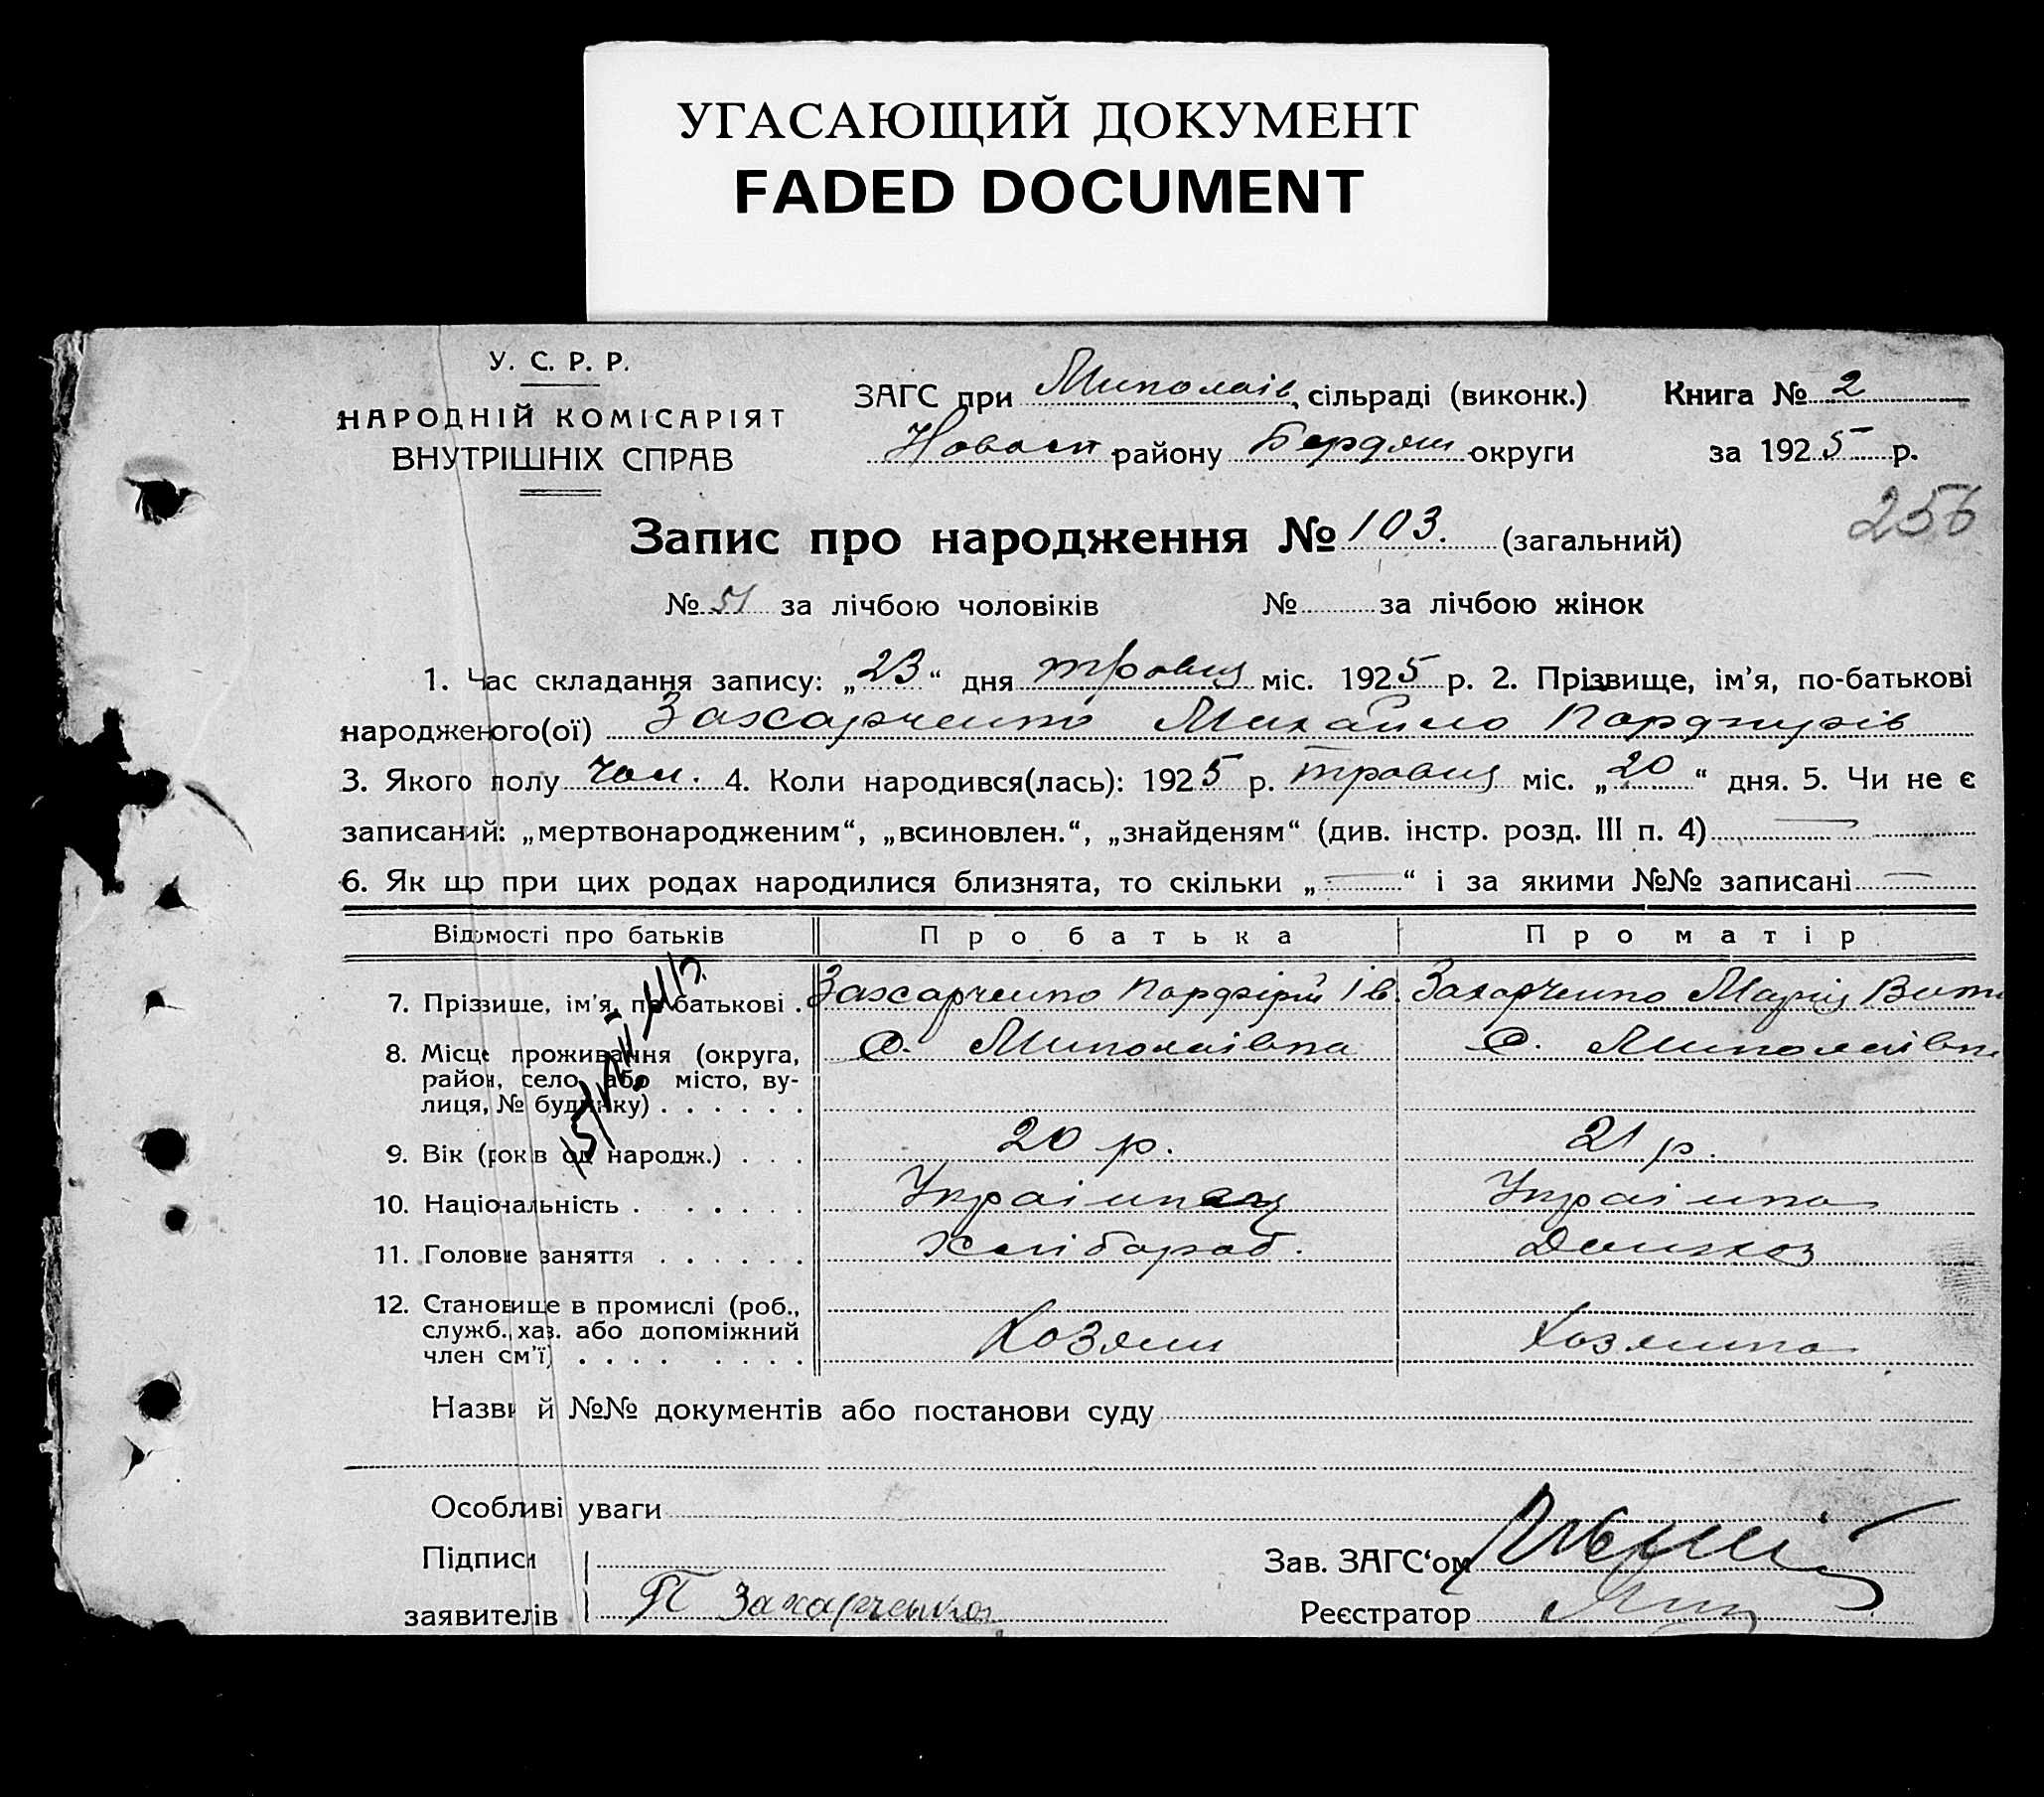 УГАСАЮЩИЙ ДОКУМЕНТ
FADED DOCUMENT
У. С. Р. Р.
НАРОДНІЙ КОМІСАРІЯТ
ВНУТРІШНІХ СПРАВ
ЗАГС при Миколаїв. сільраді (виконк.)
Новосп району Бердян округи
Книга № 2
за 1925 р.
256
Запис про народження № 103. (загальний)
№ 51 за лічбою чоловіків № за лічбою жінок
1. Час складання запису: „23“ дня травня міс. 1925 р. 2. Прізвище, ім'я, по-батькові
народженого(ої) Захарченко Михайло Парфирів
3. Якого полу Чол. 4. Коли народився(лась): 1925 р. травня міс. „20“ дня. 5. Чи не є
записаний: „мертвонародженим“, „всиновлен.“, „знайденям“ (див. інстр. розд. III п. 4) —
6. Як що при цих родах народилися близнята, то скільки „—“ і за якими №№ записані —
Відомості про батьків Про батька Про матір
7. Прізвище, ім'я, по батькові . Захарченко Парфірій Ів. Захарченко Марія
8. Місце проживання (округа, с. Миколаївка с. Миколаївка
район, село або місто, ву-
лиця, № будинку) . . . . . .
9. Вік (років од народж.) . . . 20 р. 21 р.
10. Національність . . . . . . Українець Українка
11. Головне заняття . . . . . . Хлібороб. Домхоз
12. Становище в промислі (роб.,
служб., хаз. або допоміжний
член см'ї) . . . . . . . . Хозяин Хозяйка
Назви й №№ документів або постанови суду
Особливі уваги
Підписи
заявителів П Захарченко
Зав. ЗАГС‘ом
Реєстратор